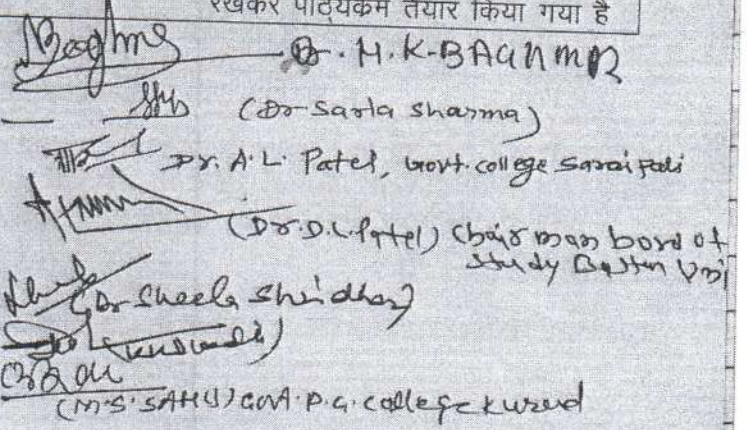 रखकर पाठ्यकम तैयार किया गया है
Dr. H.K-BAGHMAR
(Dr-Sarla Sharma)
Dr. A.L. Patel, Govt. college Saraipali
(Dr.D.L.Patel) Chairman bord of
study Basttar Uni
(Dr Sheela Shridhar)
(M.S.SAHU) Govt.P.G.college kurud